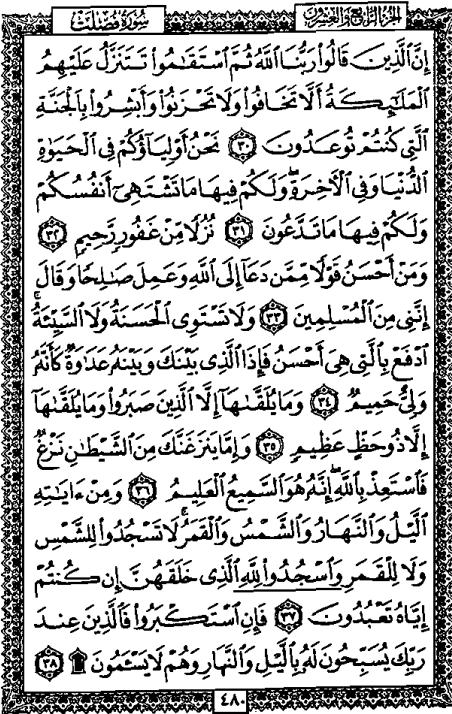 الجزء الرابع والعشرون سورة فصلت
إِنَّ ٱلَّذِينَ قَالُواْ رَبُّنَا ٱللَّهُ ثُمَّ ٱسْتَقَٰمُواْ تَتَنَزَّلُ عَلَيْهِمُ
ٱلْمَلَٰٓئِكَةُ أَلَّا تَخَافُواْ وَلَا تَحْزَنُواْ وَأَبْشِرُواْ بِٱلْجَنَّةِ
ٱلَّتِى كُنتُمْ تُوعَدُونَ ٣٠ نَحْنُ أَوْلِيَآؤُكُمْ فِى ٱلْحَيَوٰةِ
ٱلدُّنْيَا وَفِى ٱلْأَخِرَةِ ۖ وَلَكُمْ فِيهَا مَا تَشْتَهِىٓ أَنفُسُكُمْ
وَلَكُمْ فِيهَا مَا تَدَّعُونَ ٣١ نُزُلًا مِّنْ غَفُورٍ رَّحِيمٍ ٣٢
وَمَنْ أَحْسَنُ قَوْلًا مِّمَّن دَعَآ إِلَى ٱللَّهِ وَعَمِلَ صَٰلِحًا وَقَالَ
إِنَّنِى مِنَ ٱلْمُسْلِمِينَ ٣٣ وَلَا تَسْتَوِى ٱلْحَسَنَةُ وَلَا ٱلسَّيِّئَةُ ۚ
ٱدْفَعْ بِٱلَّتِى هِىَ أَحْسَنُ فَإِذَا ٱلَّذِى بَيْنَكَ وَبَيْنَهُۥ عَدَٰوَةٌ كَأَنَّهُۥ
وَلِىٌّ حَمِيمٌ ٣٤ وَمَا يُلَقَّىٰهَآ إِلَّا ٱلَّذِينَ صَبَرُواْ وَمَا يُلَقَّىٰهَآ
إِلَّا ذُو حَظٍّ عَظِيمٍ ٣٥ وَإِمَّا يَنزَغَنَّكَ مِنَ ٱلشَّيْطَٰنِ نَزْغٌ
فَٱسْتَعِذْ بِٱللَّهِ ۖ إِنَّهُۥ هُوَ ٱلسَّمِيعُ ٱلْعَلِيمُ ٣٦ وَمِنْ ءَايَٰتِهِ
ٱلَّيْلُ وَٱلنَّهَارُ وَٱلشَّمْسُ وَٱلْقَمَرُ ۚ لَا تَسْجُدُواْ لِلشَّمْسِ
وَلَا لِلْقَمَرِ وَٱسْجُدُواْ لِلَّهِ ٱلَّذِى خَلَقَهُنَّ إِن كُنتُمْ
إِيَّاهُ تَعْبُدُونَ ٣٧ فَإِنِ ٱسْتَكْبَرُواْ فَٱلَّذِينَ عِندَ
رَبِّكَ يُسَبِّحُونَ لَهُۥ بِٱلَّيْلِ وَٱلنَّهَارِ وَهُمْ لَا يَسْـَٔمُونَ ۩ ٣٨
٤٨٠